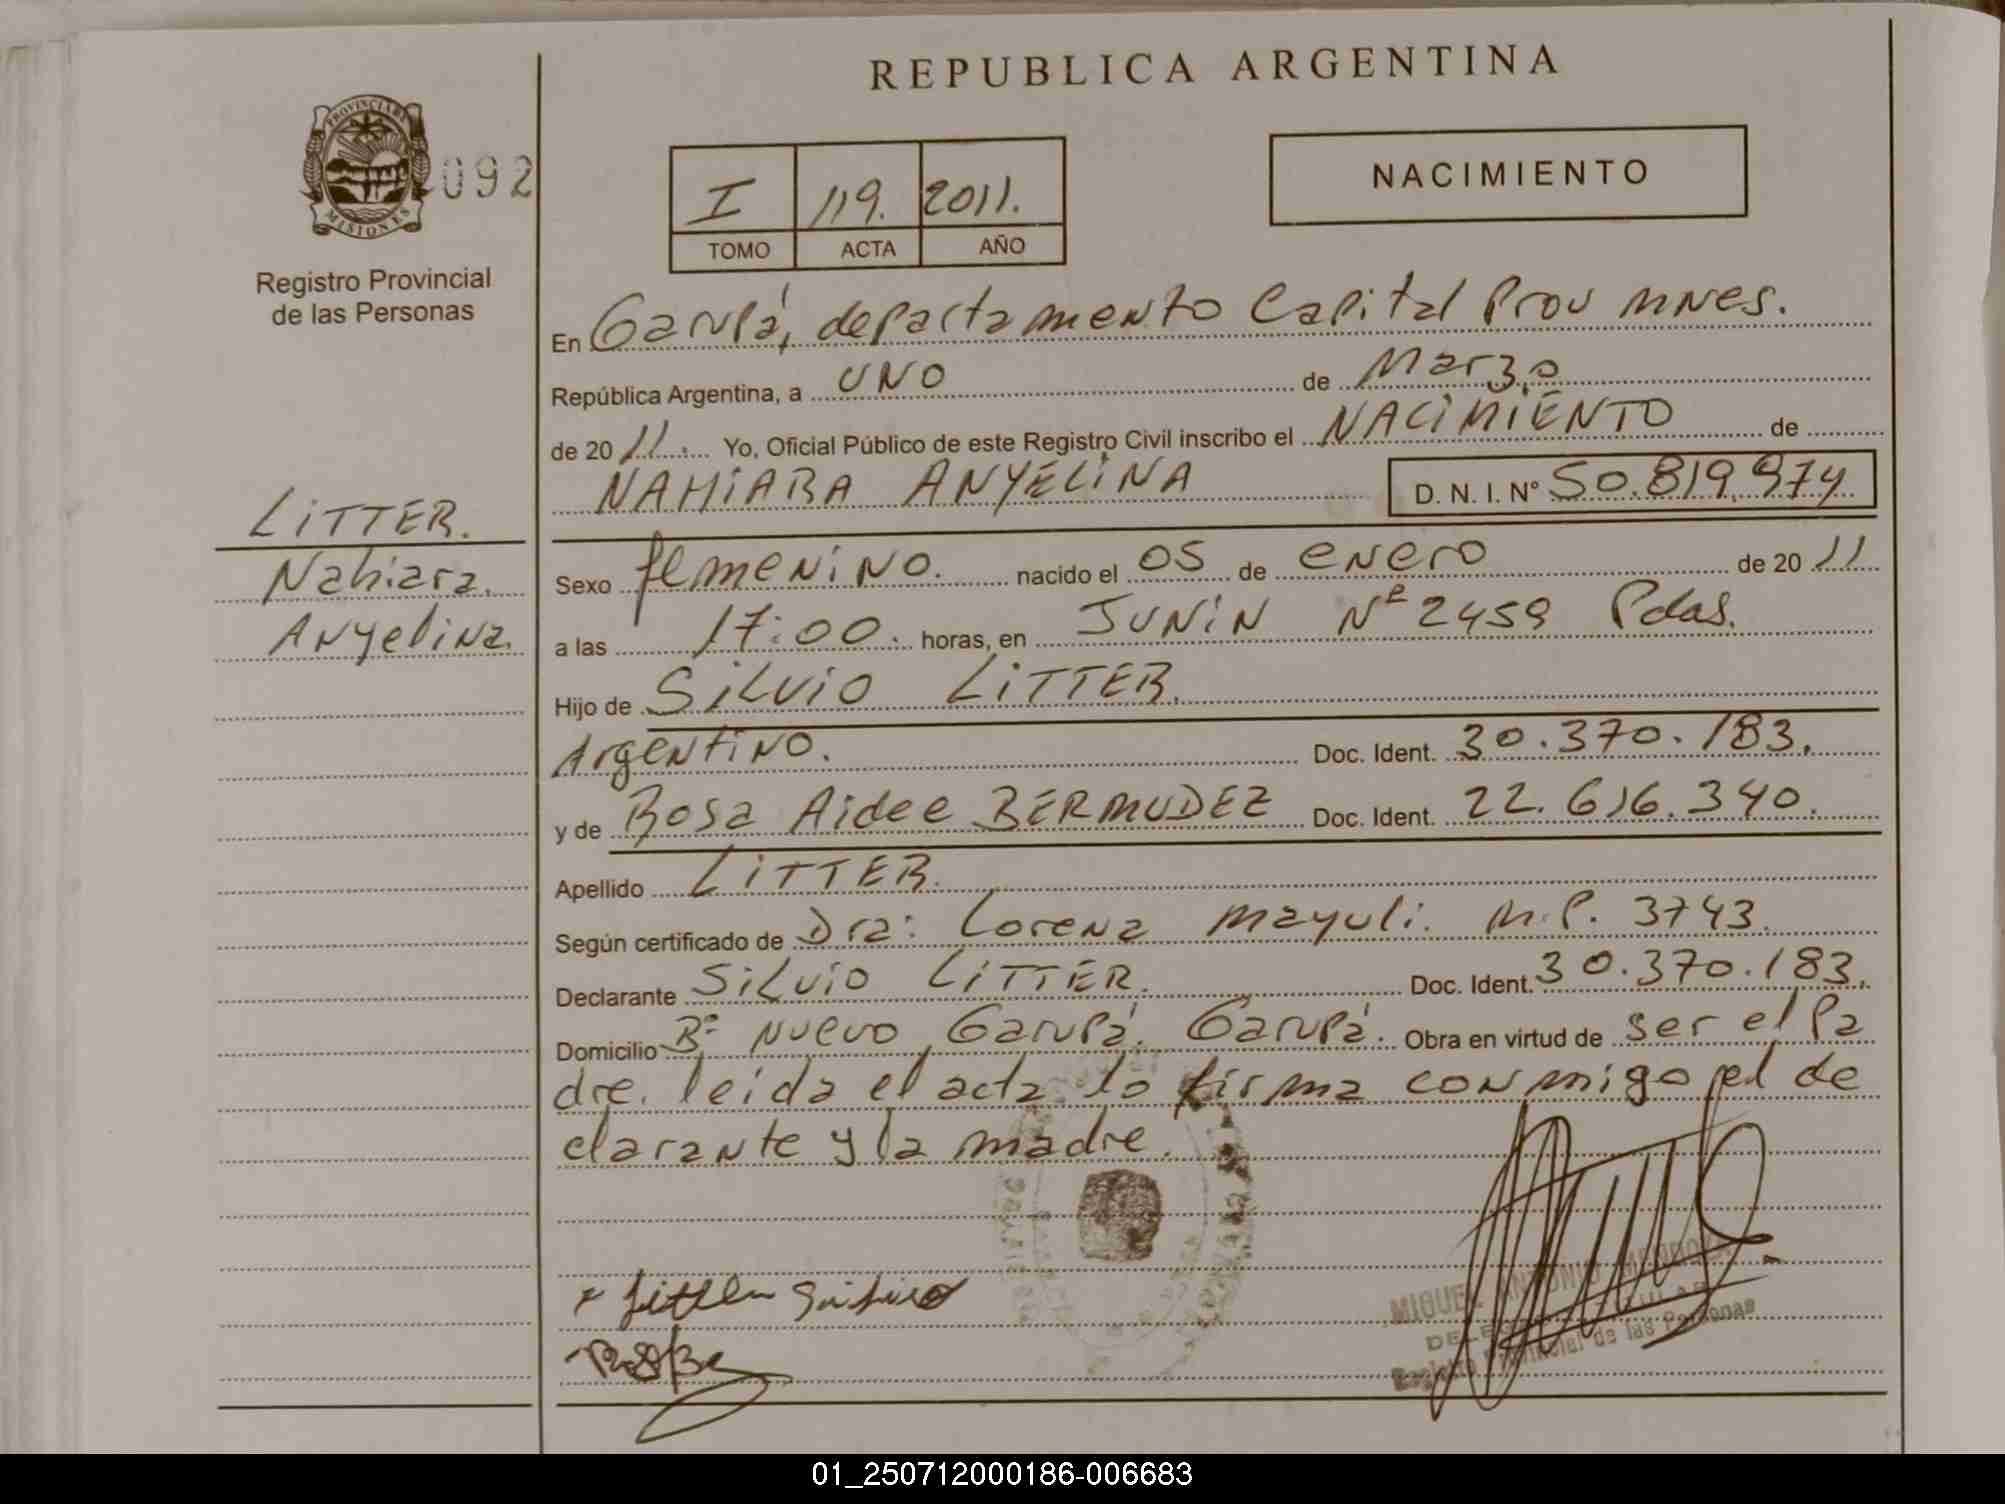 REPUBLICA ARGENTINA
PROVINCIA DE
MISIONES
092
Registro Provincial
de las Personas
I 119. 2011.
TOMO ACTA AÑO
NACIMIENTO
En Garupá, departamento Capital Prov MNES.
República Argentina, a UNO de Marzo
de 2011. Yo, Oficial Público de este Registro Civil inscribo el NACIMIENTO de
NAHIARA ANYELINA D. N. I. Nº 50.819.974
LITTER.
Nahiara.
Anyelina.
Sexo femenino. nacido el 05 de enero de 2011
a las 17:00. horas, en JUNIN Nº 2459 Pdas.
Hijo de SILVIO LITTER.
Argentino. Doc. Ident. 30.370.183.
y de Rosa Aidee BERMUDEZ Doc. Ident. 22.616.340.
Apellido LITTER.
Según certificado de Dra: Lorena Mayuli. M.P. 3743.
Declarante SILVIO LITTER. Doc. Ident. 30.370.183.
Domicilio Bº Nuevo Garupá. Garupá. Obra en virtud de ser el Pa
dre. leida el acta lo firma conmigo el de
clarante y la madre.
Litter Silvio
MIGUEL ANTONIO
Registro Provincial de las Personas
01_250712000186-006683